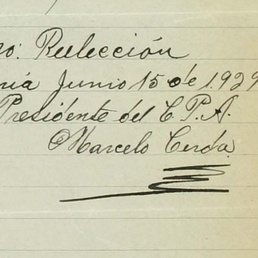 o: Reelección
nia Junio 15 de 1929
Presidente del C.P.A.
Marcelo Cerda